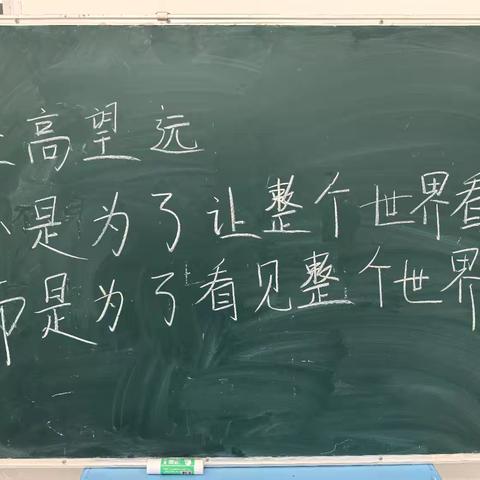 高望远
不是为了让整个世界看
而是为了看见整个世界